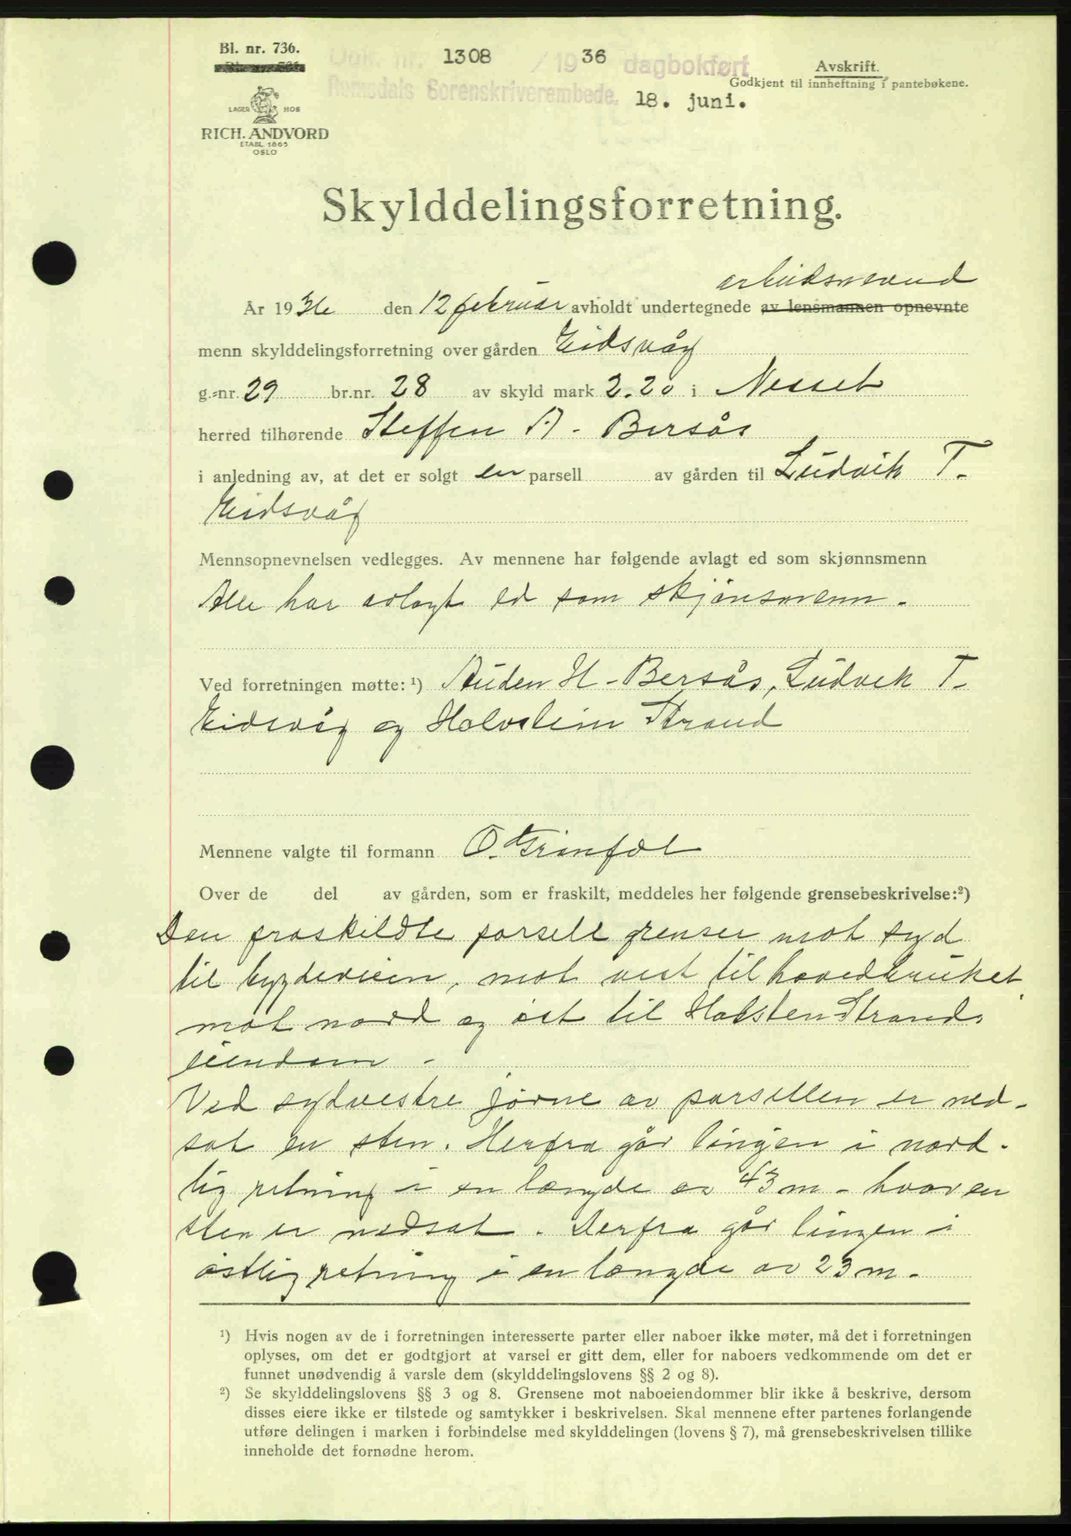 Bl. nr. 736.
Dok. nr. 1308 / 1936 dagbokført
Romsdals Sorenskriverembede. 18. juni.
Avskrift.
Godkjent til innheftning i pantebøkene.
LAGER HOS
RICH. ANDVORD
ETABL. 1865
OSLO
Skylddelingsforretning.
År 1936 den 12 februar avholdt undertegnede av lensmannen opnevnte
menn skylddelingsforretning over gården Eidsvåg
g.-nr. 29 br.nr. 28 av skyld mark 2.20 i Nesset
herred tilhørende Steffen A. Bersås
i anledning av, at det er solgt en parsell av gården til Ludvik T.
Eidsvåg
Mennsopnevnelsen vedlegges. Av mennene har følgende avlagt ed som skjønnsmenn
Alle har avlagt ed som skjønsmenn.
Ved forretningen møtte: ¹) Auden H. Bersås, Ludvik T.
Eidsvåg og Halvstein Strand
Mennene valgte til formann O. Grønfål
Over de del av gården, som er fraskilt, meddeles her følgende grensebeskrivelse:²)
Den fraskildte parsell grenser mot syd
til bygdeveien, mot vest til hovedbruket
mot nord og øst til Holsten Strands
eiendom.
Ved sydvestre jørne av parsellen er ned-
sat en sten. Herfra går linjen i nord-
lig retning i en længde av 43 m. hvor en
sten er nedsat. Derfra går linjen i
østlig retning i en længde av 23 m.
¹) Hvis nogen av de i forretningen interesserte parter eller naboer ikke møter, må det i forretningen
oplyses, om det er godtgjort at varsel er gitt dem, eller for naboers vedkommende om det er
funnet unødvendig å varsle dem (skylddelingslovens §§ 2 og 8).
²) Se skylddelingslovens §§ 3 og 8. Grensene mot naboeiendommer blir ikke å beskrive, dersom
disses eiere ikke er tilstede og samtykker i beskrivelsen. Skal mennene efter partenes forlangende
utføre delingen i marken i forbindelse med skylddelingen (lovens § 7), må grensebeskrivelsen tillike
inneholde det fornødne herom.